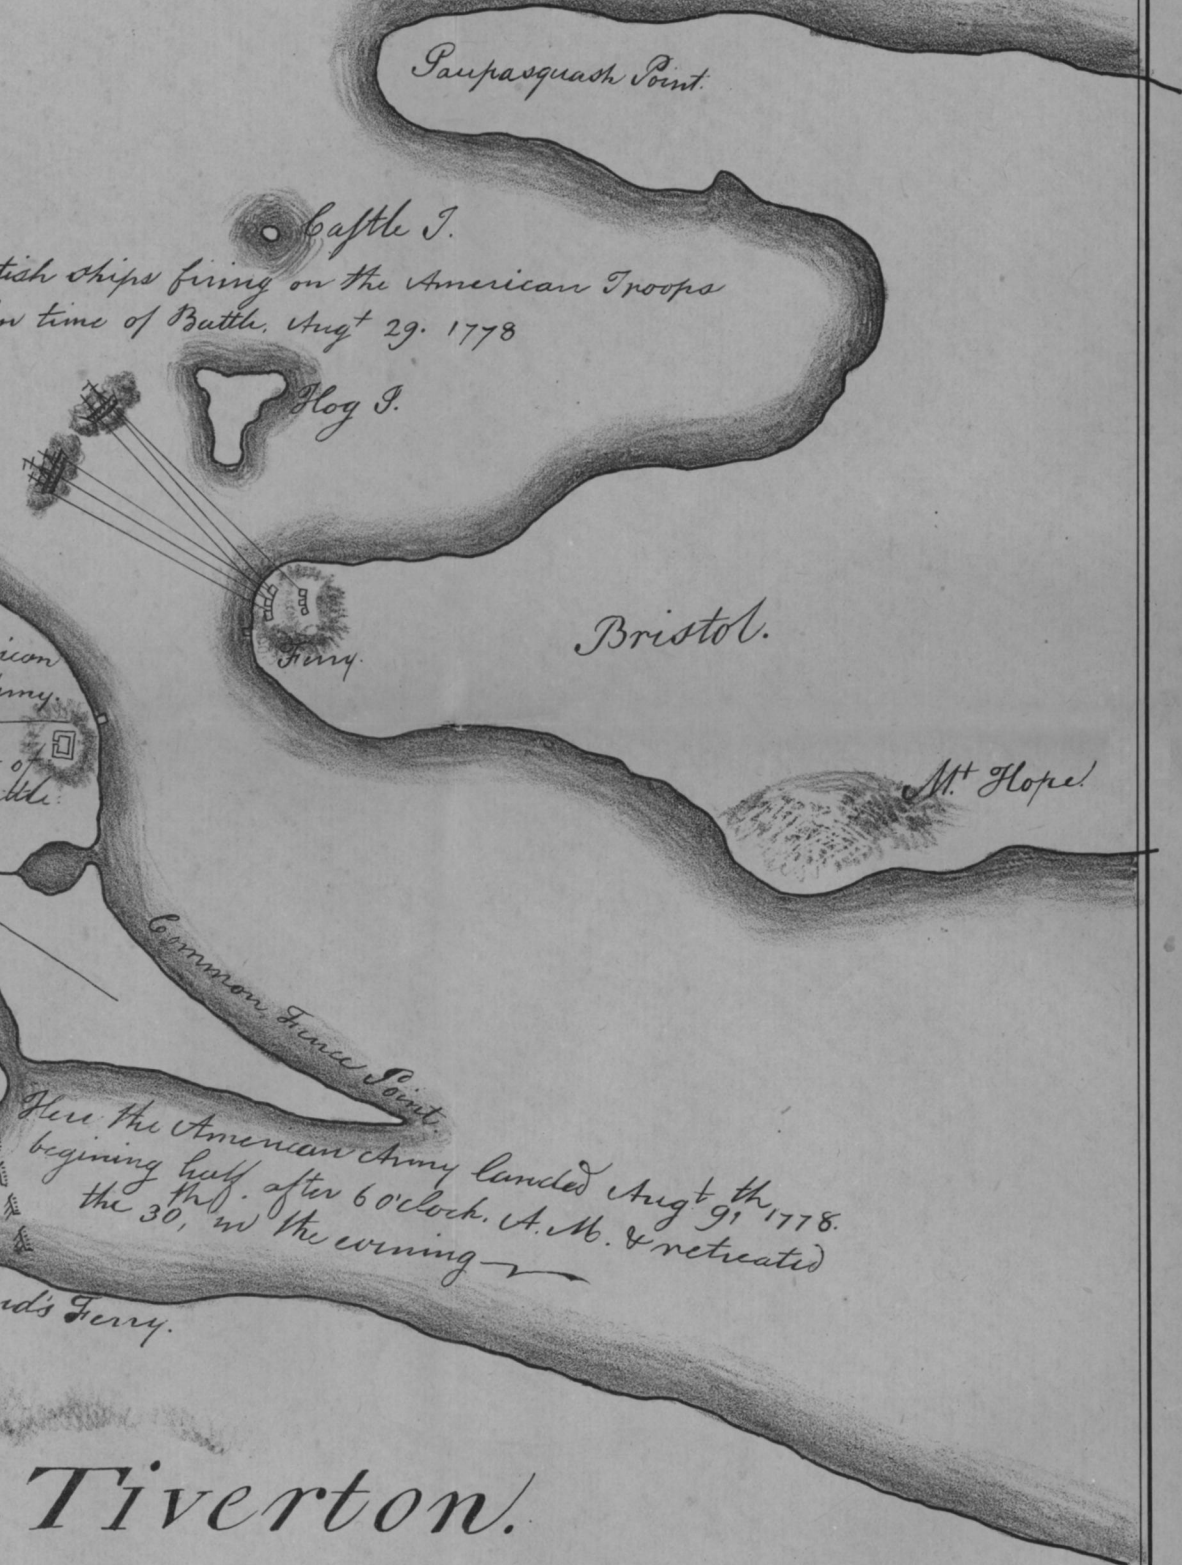 Paupasquash Point.
Castle I.
ships firing on the American Troops
time of Battle, Augt 29. 1778
Hog I.
Ferry.
Bristol.
of
Mt. Hope
Common Fence Point.
Here the American Army landed Augt 9th, 1778.
begining half. after 6 o'clock. A.M. & retreated
the 30th, in the evening
Ferry.
Tiverton.